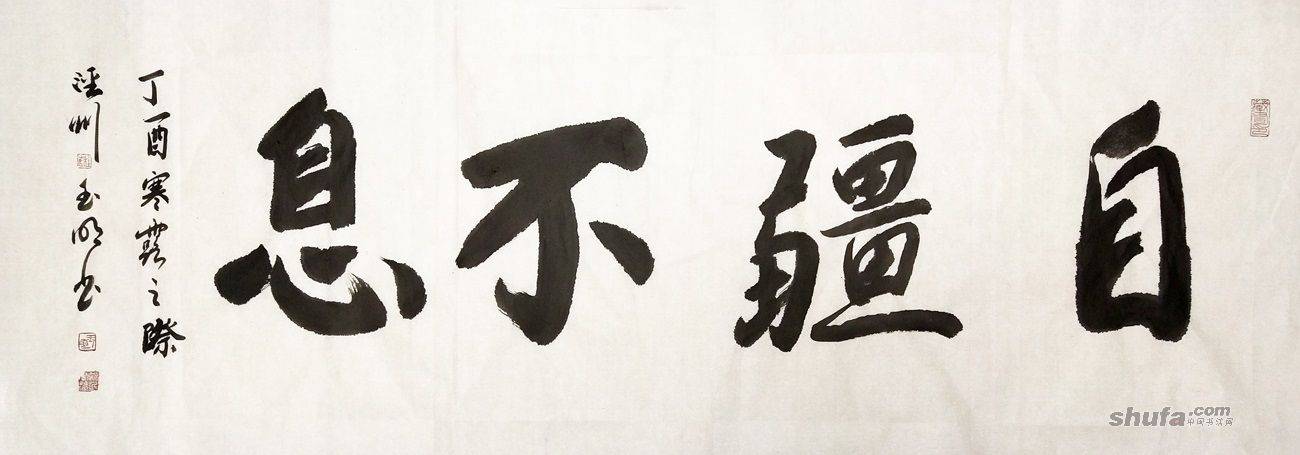 自疆不息
丁酉寒露之際
涇州玉明书
shufa.com
中国书法网